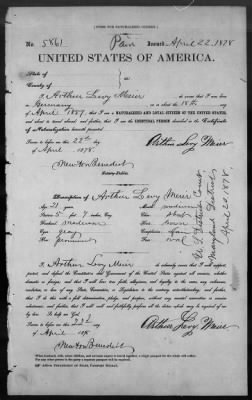 [FORM FOR NATURALIZED CITIZEN.]
No. 5861 Paid Issued April 22, 1878
UNITED STATES OF AMERICA.
State of
County of
I, Arthur Levy Meier, do swear that I was born
in Germany on or about the 18th day
of April 1857; that I am a NATURALIZED AND LOYAL CITIZEN OF THE UNITED STATES,
and about to travel abroad; and further, that I am the IDENTICAL PERSON described in the Certificate
of Naturalization herewith presented.
Sworn to before me this 22nd day
of April 1878.
Arthur Levy Meier
Notary Public.
Description of Arthur Levy Meier
Age: 21 years
Mouth: medium
Stature: 5 feet inches, Eng.
Chin:
Forehead: medium
Hair: brown
Eyes: gray
Complexion:
Nose: prominent
Face: oval
U.S. District Court
Maryland District
April 20 1878
I, Arthur Levy Meier, do solemnly swear that I will support,
protect, and defend the Constitution and Government of the United States against all enemies, whether
domestic or foreign; and that I will bear true faith, allegiance, and loyalty to the same, any ordinance,
resolution, or law of any State, Convention, or Legislature to the contrary notwithstanding; and further,
that I do this with a full determination, pledge, and purpose, without any mental reservation or evasion
whatsoever; and further, that I will well and faithfully perform all the duties which may be required of me
by law. So help me God.
Sworn to before me this 22d day
of April 1878
Arthur Levy Meier
Notary Public.